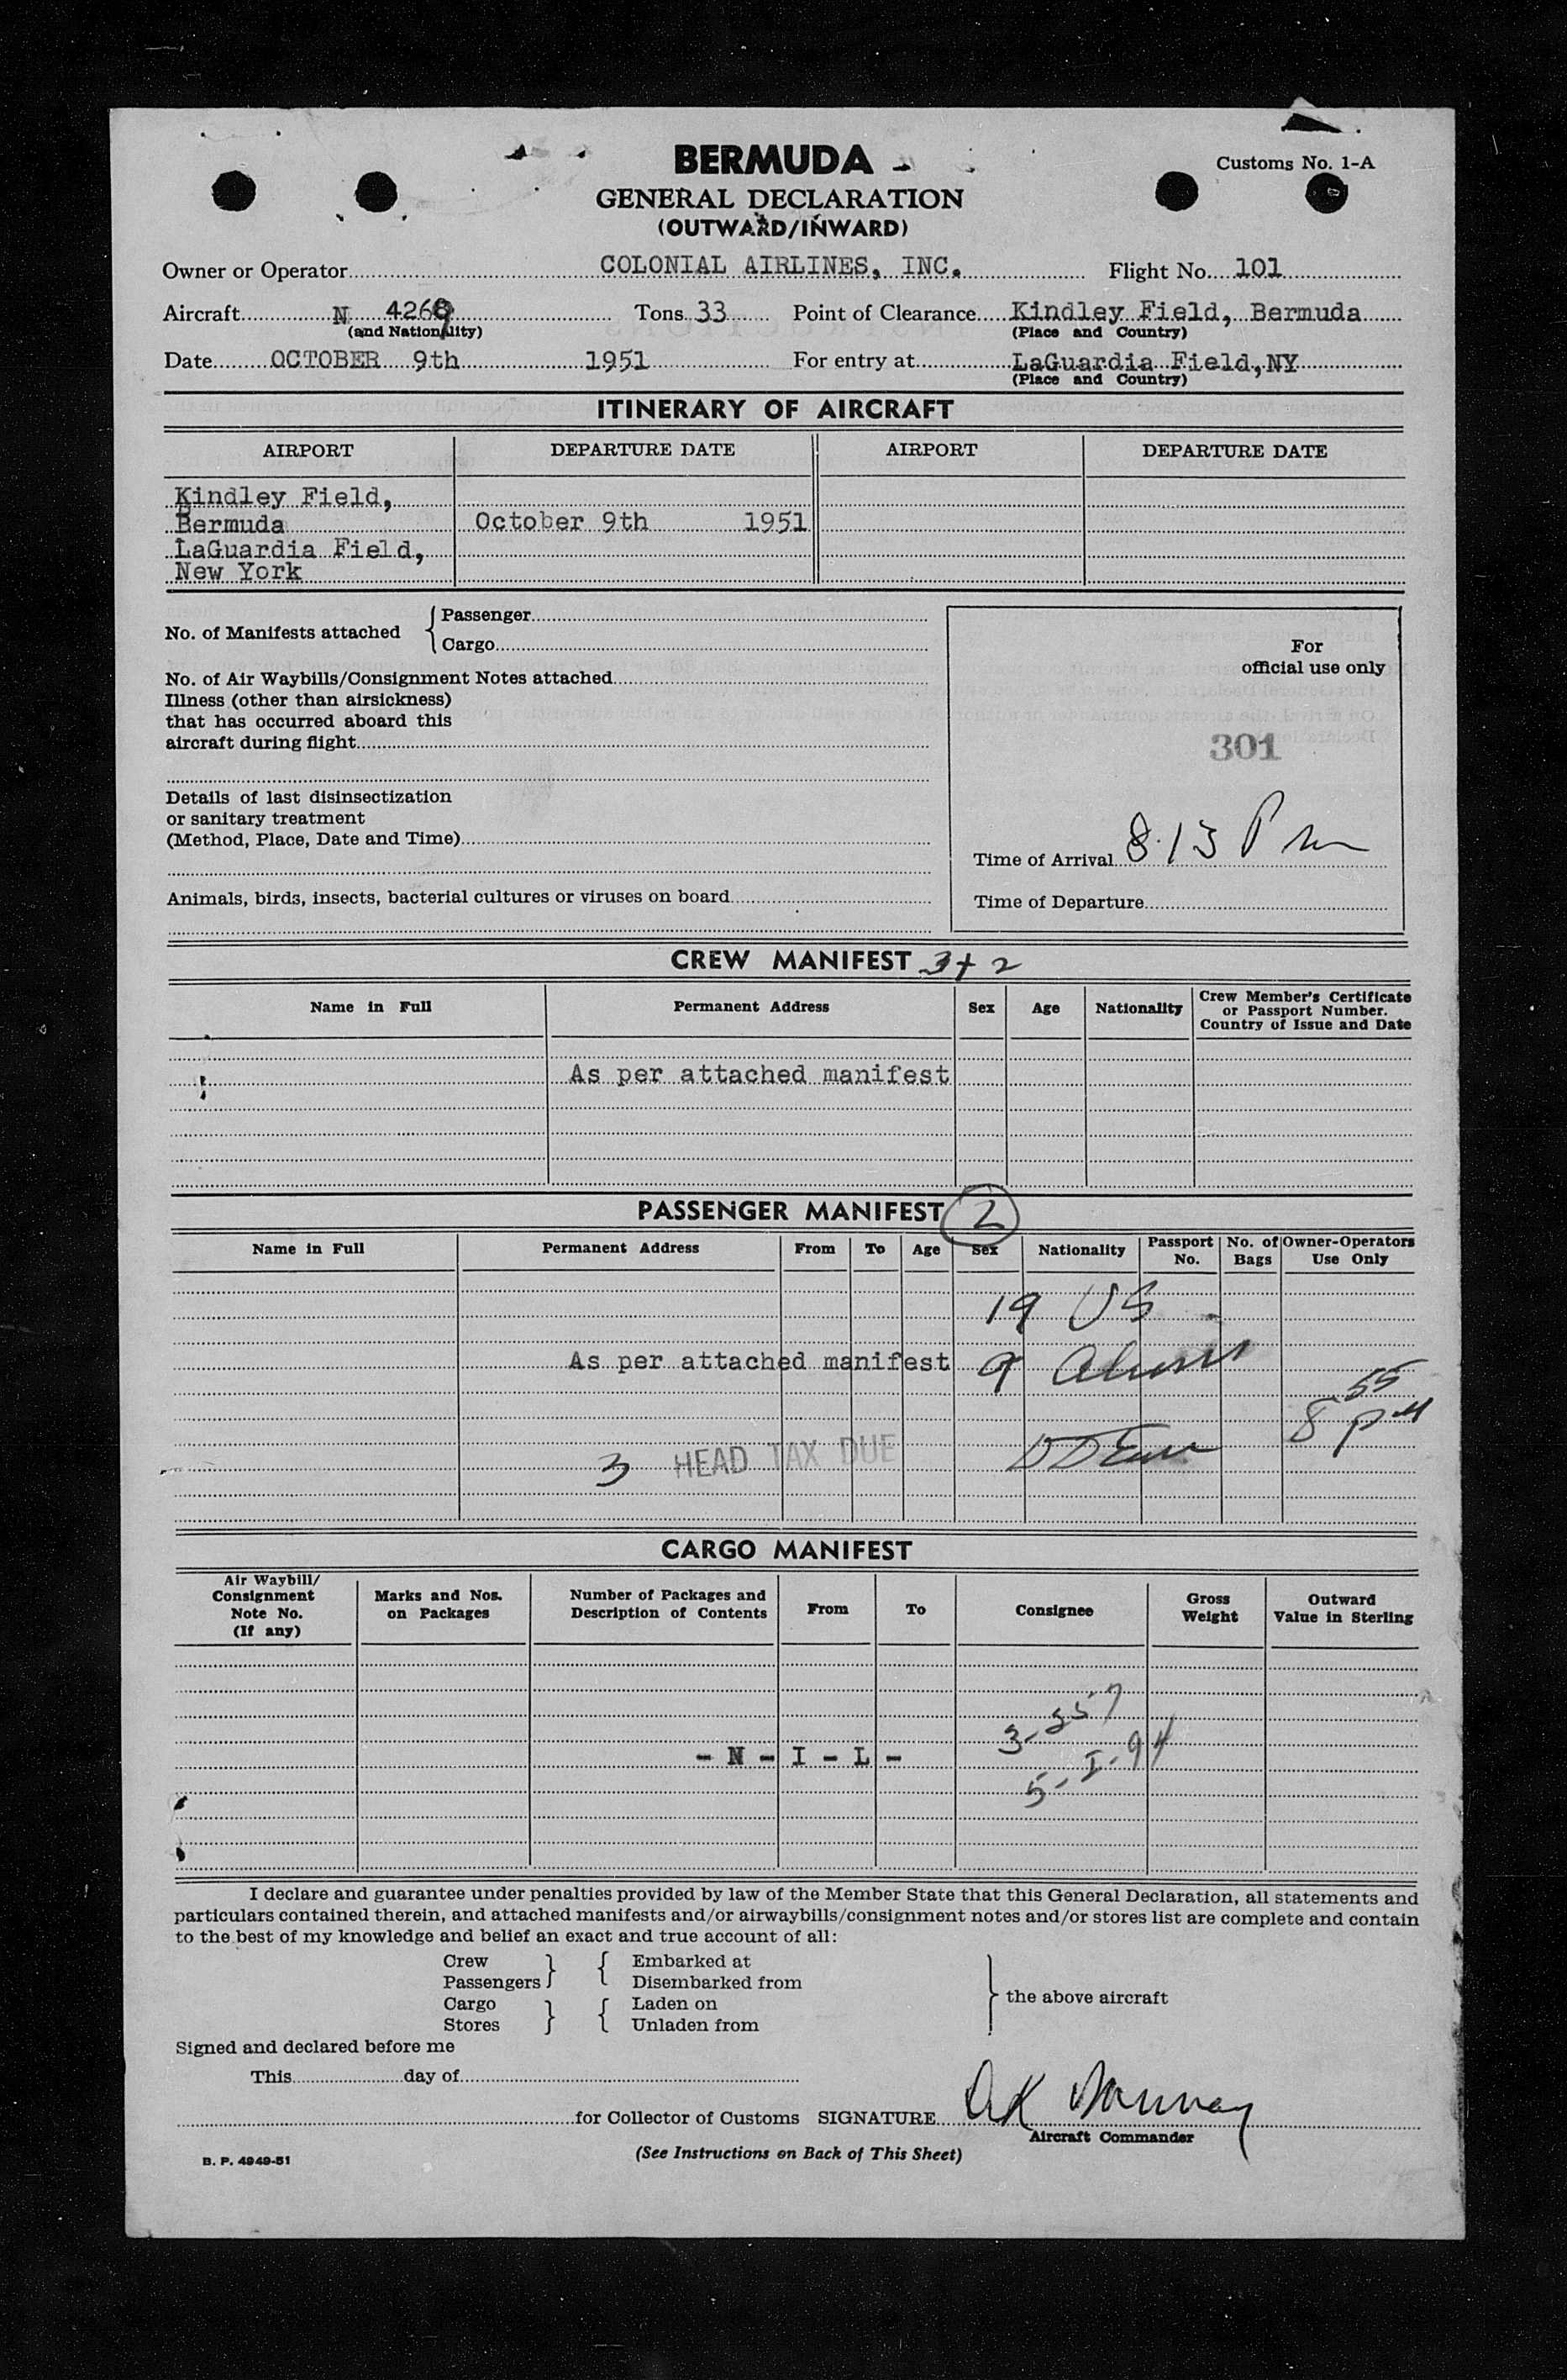 BERMUDA
Customs No. 1-A
GENERAL DECLARATION
(OUTWARD/INWARD)
Owner or Operator COLONIAL AIRLINES, INC. Flight No. 101
Aircraft N 4269 Tons 33 Point of Clearance Kindley Field, Bermuda
(and Nationality) (Place and Country)
Date OCTOBER 9th 1951 For entry at LaGuardia Field, NY
(Place and Country)
ITINERARY OF AIRCRAFT
AIRPORT DEPARTURE DATE AIRPORT DEPARTURE DATE
Kindley Field,
Bermuda October 9th 1951
LaGuardia Field,
New York
No. of Manifests attached { Passenger
Cargo
No. of Air Waybills/Consignment Notes attached
Illness (other than airsickness)
that has occurred aboard this
aircraft during flight
Details of last disinsectization
or sanitary treatment
(Method, Place, Date and Time)
Animals, birds, insects, bacterial cultures or viruses on board
For
official use only
301
Time of Arrival 8:13 Pm
Time of Departure
CREW MANIFEST 3+2
Name in Full Permanent Address Sex Age Nationality Crew Member's Certificate
or Passport Number.
Country of Issue and Date
As per attached manifest
PASSENGER MANIFEST 2
Name in Full Permanent Address From To Age Sex Nationality Passport No. No. of Bags Owner-Operators Use Only
19 US
As per attached manifest 9 Aliens
8 55 PM
3 HEAD TAX DUE
CARGO MANIFEST
Air Waybill/
Consignment
Note No.
(If any)
Marks and Nos.
on Packages
Number of Packages and
Description of Contents
From To Consignee
Gross
Weight
Outward
Value in Sterling
3-257
- N - I - L -
5-I-94
I declare and guarantee under penalties provided by law of the Member State that this General Declaration, all statements and
particulars contained therein, and attached manifests and/or airwaybills/consignment notes and/or stores list are complete and contain
to the best of my knowledge and belief an exact and true account of all:
Crew } { Embarked at
Passengers } { Disembarked from
Cargo } { Laden on
Stores } { Unladen from
} the above aircraft
Signed and declared before me
This day of
for Collector of Customs SIGNATURE
Aircraft Commander
(See Instructions on Back of This Sheet)
B. P. 4949-51